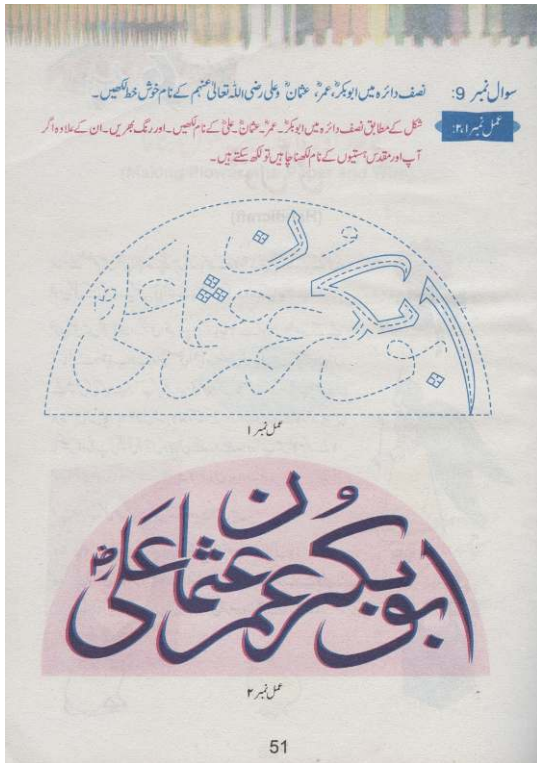 سوال نمبر 9: نصف دائرہ میں ابوبکرؓ، عمرؓ، عثمانؓ وعلی رضی اللہ تعالیٰ عنہم کے نام خوش خط لکھیں۔
عمل نمبر ۱،۲: شکل کے مطابق نصف دائرہ میں ابوبکرؓ۔ عمرؓ۔ عثمانؓ۔ علیؓ کے نام لکھیں۔ اور رنگ بھریں۔ ان کے علاوہ اگر
آپ اور مقدس ہستیوں کے نام لکھنا چاہیں تو لکھ سکتے ہیں۔
ابوبکر عمر عثمان علی
عمل نمبر ۱
ابوبکر عمر عثمان علی
عمل نمبر ۲
51